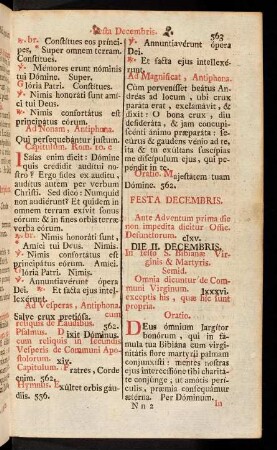 Festa Decembris.
563
℟. br. Constítues eos prínci-
pes, * Super omnem terram.
Constítues.
℣. Mémores erunt nóminis
tui Dómine. Super.
Glória Patri. Constítues.
℣. Nimis honoráti sunt amí-
ci tui Deus.
℟. Nimis confortátus est
principátus eórum.
Ad Nonam, Antiphona.
Qui persequebántur justum.
Capitulum. Rom. 10. c.
Isaías enim dicit: Dómine
quis crédidit audítui no-
stro? Ergo fides ex audítu,
audítus autem per verbum
Christi. Sed dico: Numquid
non audiérunt? Et quidem in
omnem terram exívit sonus
eórum: & in fines orbis terræ
verba eórum.
℟. br. Nimis honoráti sunt,
* Amíci tui Deus. Nimis.
℣. Nimis confortátus est
principátus eórum. Amíci.
Glória Patri. Nimis.
℣. Annuntiavérunt ópera
Dei. ℟. Et facta ejus intel-
lexérunt.
Ad Vesperas, Antiphona.
Salve crux pretiósa. cum
reliquis de Laudibus. 562.
Psalmus. Dixit Dóminus.
cum reliquis in secundis
Vesperis de Communi Apo-
stolorum. xiv.
Capitulum. Fratres, Corde
enim. 562.
Hymnus. Exúltet orbis gáu-
diis. 556.
℣. Annuntiavérunt ópera
Dei.
℟. Et facta ejus intellexé-
runt.
Ad Magnificat, Antiphona.
Cum pervenísset beátus An-
dréas ad locum, ubi crux
paráta erat, exclamávit, &
dixit: O bona crux, diu
desideráta, & jam concupi-
scénti ánimo præparáta: se-
cúrus & gaudens vénio ad
te, ita & tu exúltans suscípias
me discípulum ejus, qui pe-
péndit in te.
Oratio. Majestátem tuam
Dómine. 562.
FESTA DECEMBRIS.
Ante Adventum prima die
non impedita dicitur Offic.
Defunctorum. clxv.
DIE II. DECEMBRIS.
In festo S. Bibianæ Vir-
ginis & Martyris.
Semid.
Omnia dicuntur de Com-
muni Virginum. lxxxvi.
exceptis his, quæ hic sunt
propria.
Oratio.
Deus ómnium largítor
bonórum, qui in fá-
mula tua Bibiána cum vir-
ginitátis flore martyrii palmam
conjunxísti: mentes nostras
ejus intercessióne tibi charitá-
te conjúnge; ut amótis perí-
culis, prǽmia consequámur
ætérna. Per Dóminum.
N n 2
In